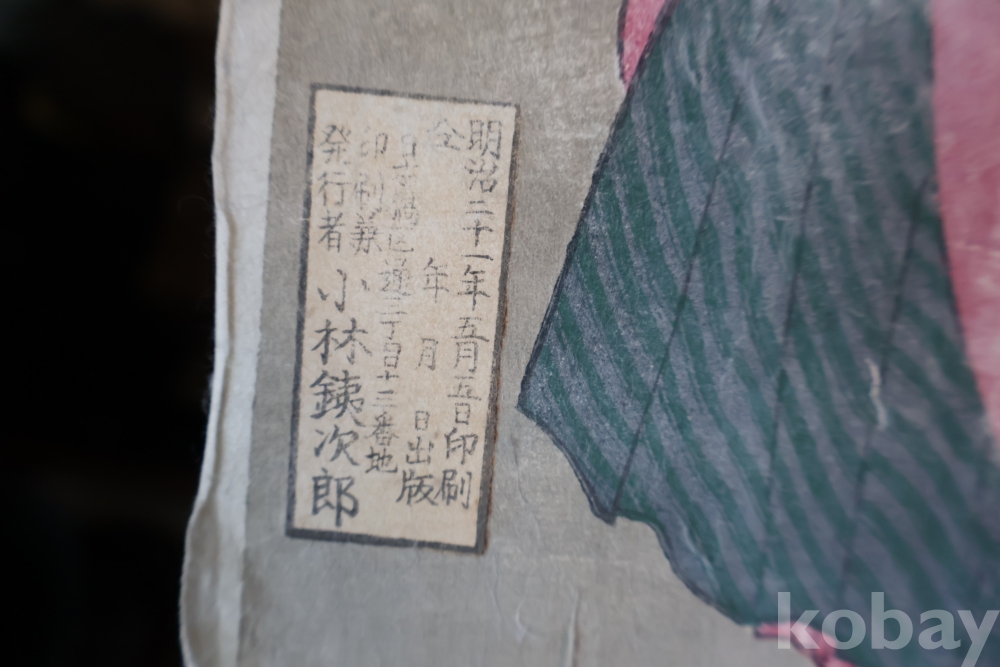 明治二十一年五月五日印刷
仝 年 月 日出版
日本橋区通三丁目十三番地
印刷兼
発行者 小林銕次郎
kobay